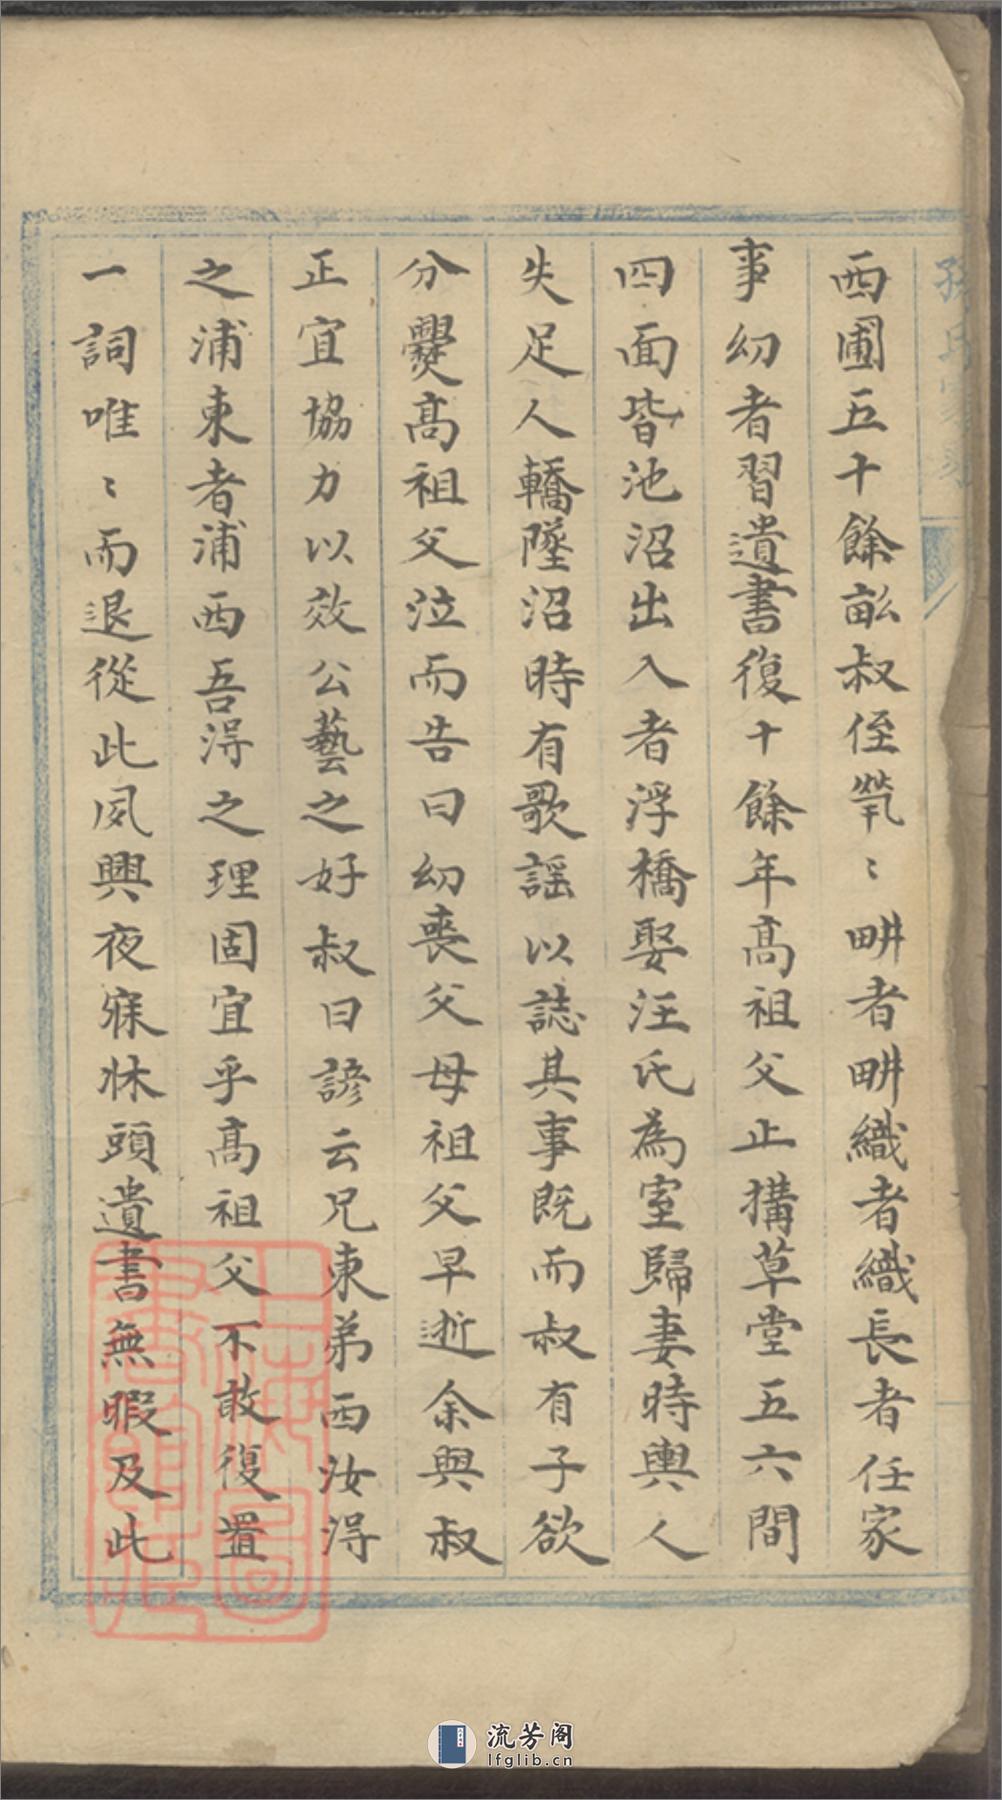 西圃五十餘畝叔侄煢〻畊者畊織者織長者任家
事幼者習遺書復十餘年高祖父止搆草堂五六間
四面皆池沼出入者浮橋娶汪氏為室歸妻時輿人
失足人轎墜沼時有歌謠以誌其事既而叔有子欲
分爨高祖父泣而告曰幼喪父母祖父早逝余與叔
正宜協力以效公藝之好叔曰諺云兄東弟西汝淂
之浦東者浦西吾淂之理固宜乎高祖父不敢復置
一詞唯〻而退從此夙興夜寐牀頭遺書無暇及此
上海圖書館藏
流芳阁
lfglib.cn